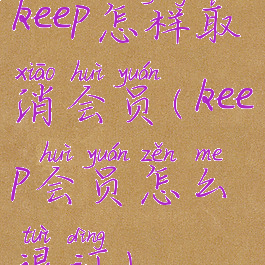 keep怎样取
xiāo huì yuán
消会员(kee
huì yuán zěn me
p会员怎么
tuì dìng
退订)